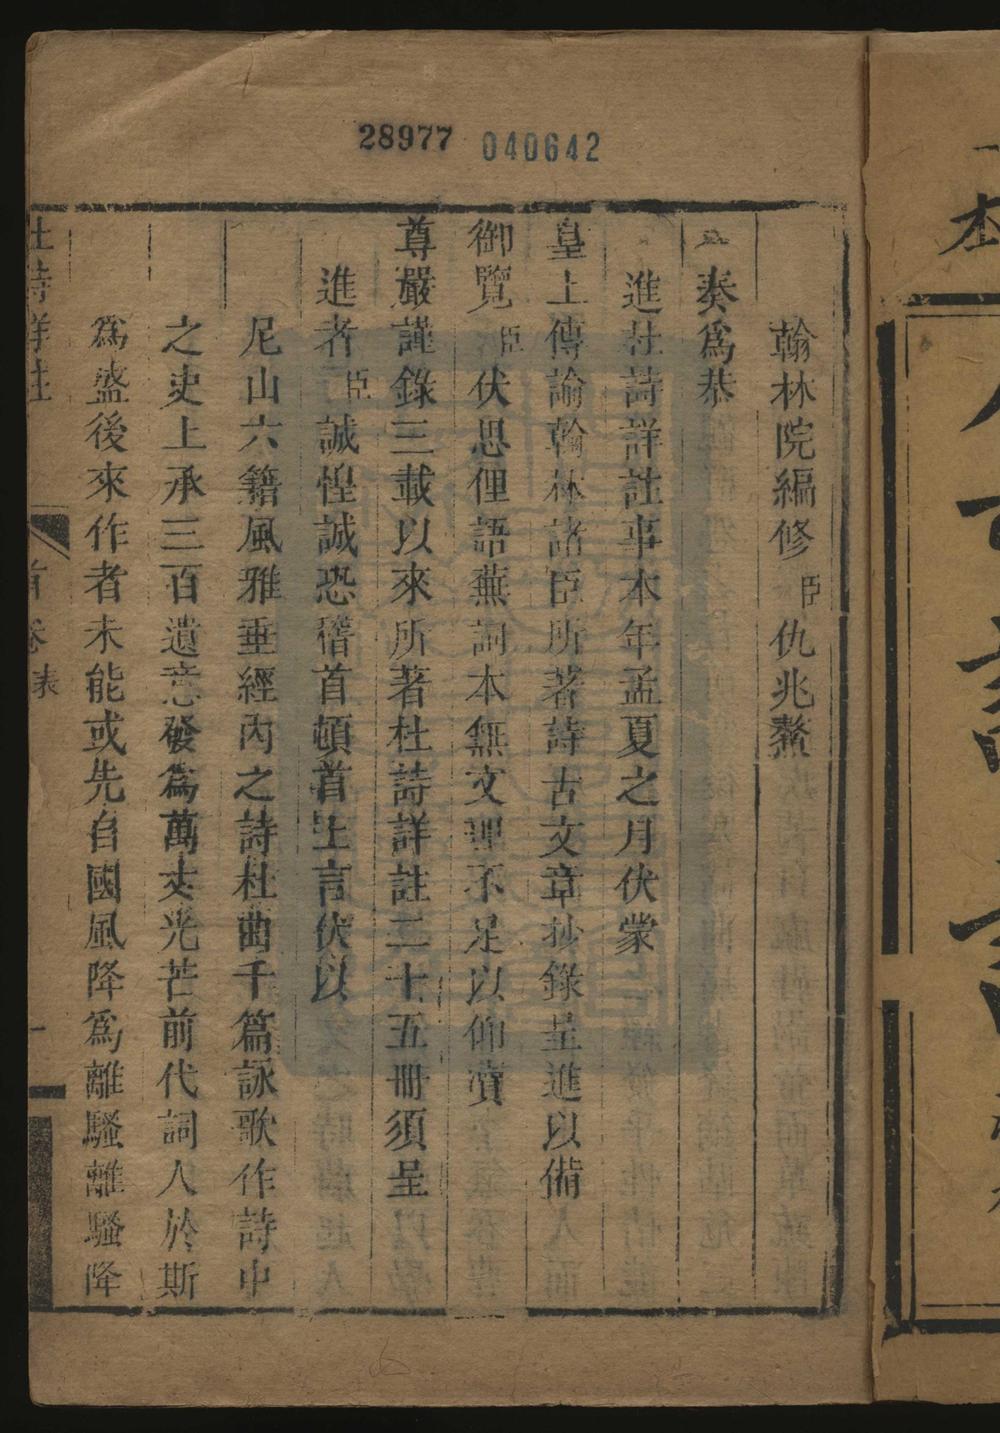 28977 040642
翰林院編修臣仇兆鰲
奏為恭
進杜詩詳註事本年孟夏之月伏蒙
皇上傳諭翰林諸臣所著詩古文章抄錄呈進以備
御覽臣伏思俚語蕪詞本無文理不足以仰瀆
尊嚴謹錄三載以來所著杜詩詳註二十五冊須呈
進者臣誠惶誠恐稽首頓首上言伏以
尼山六籍風雅垂經內之詩杜曲千篇詠歌作詩中
之史上承三百遺意發為萬丈光芒前代詞人於斯
為盛後來作者未能或先自國風降為離騷離騷降
杜詩詳註
首卷
表
一